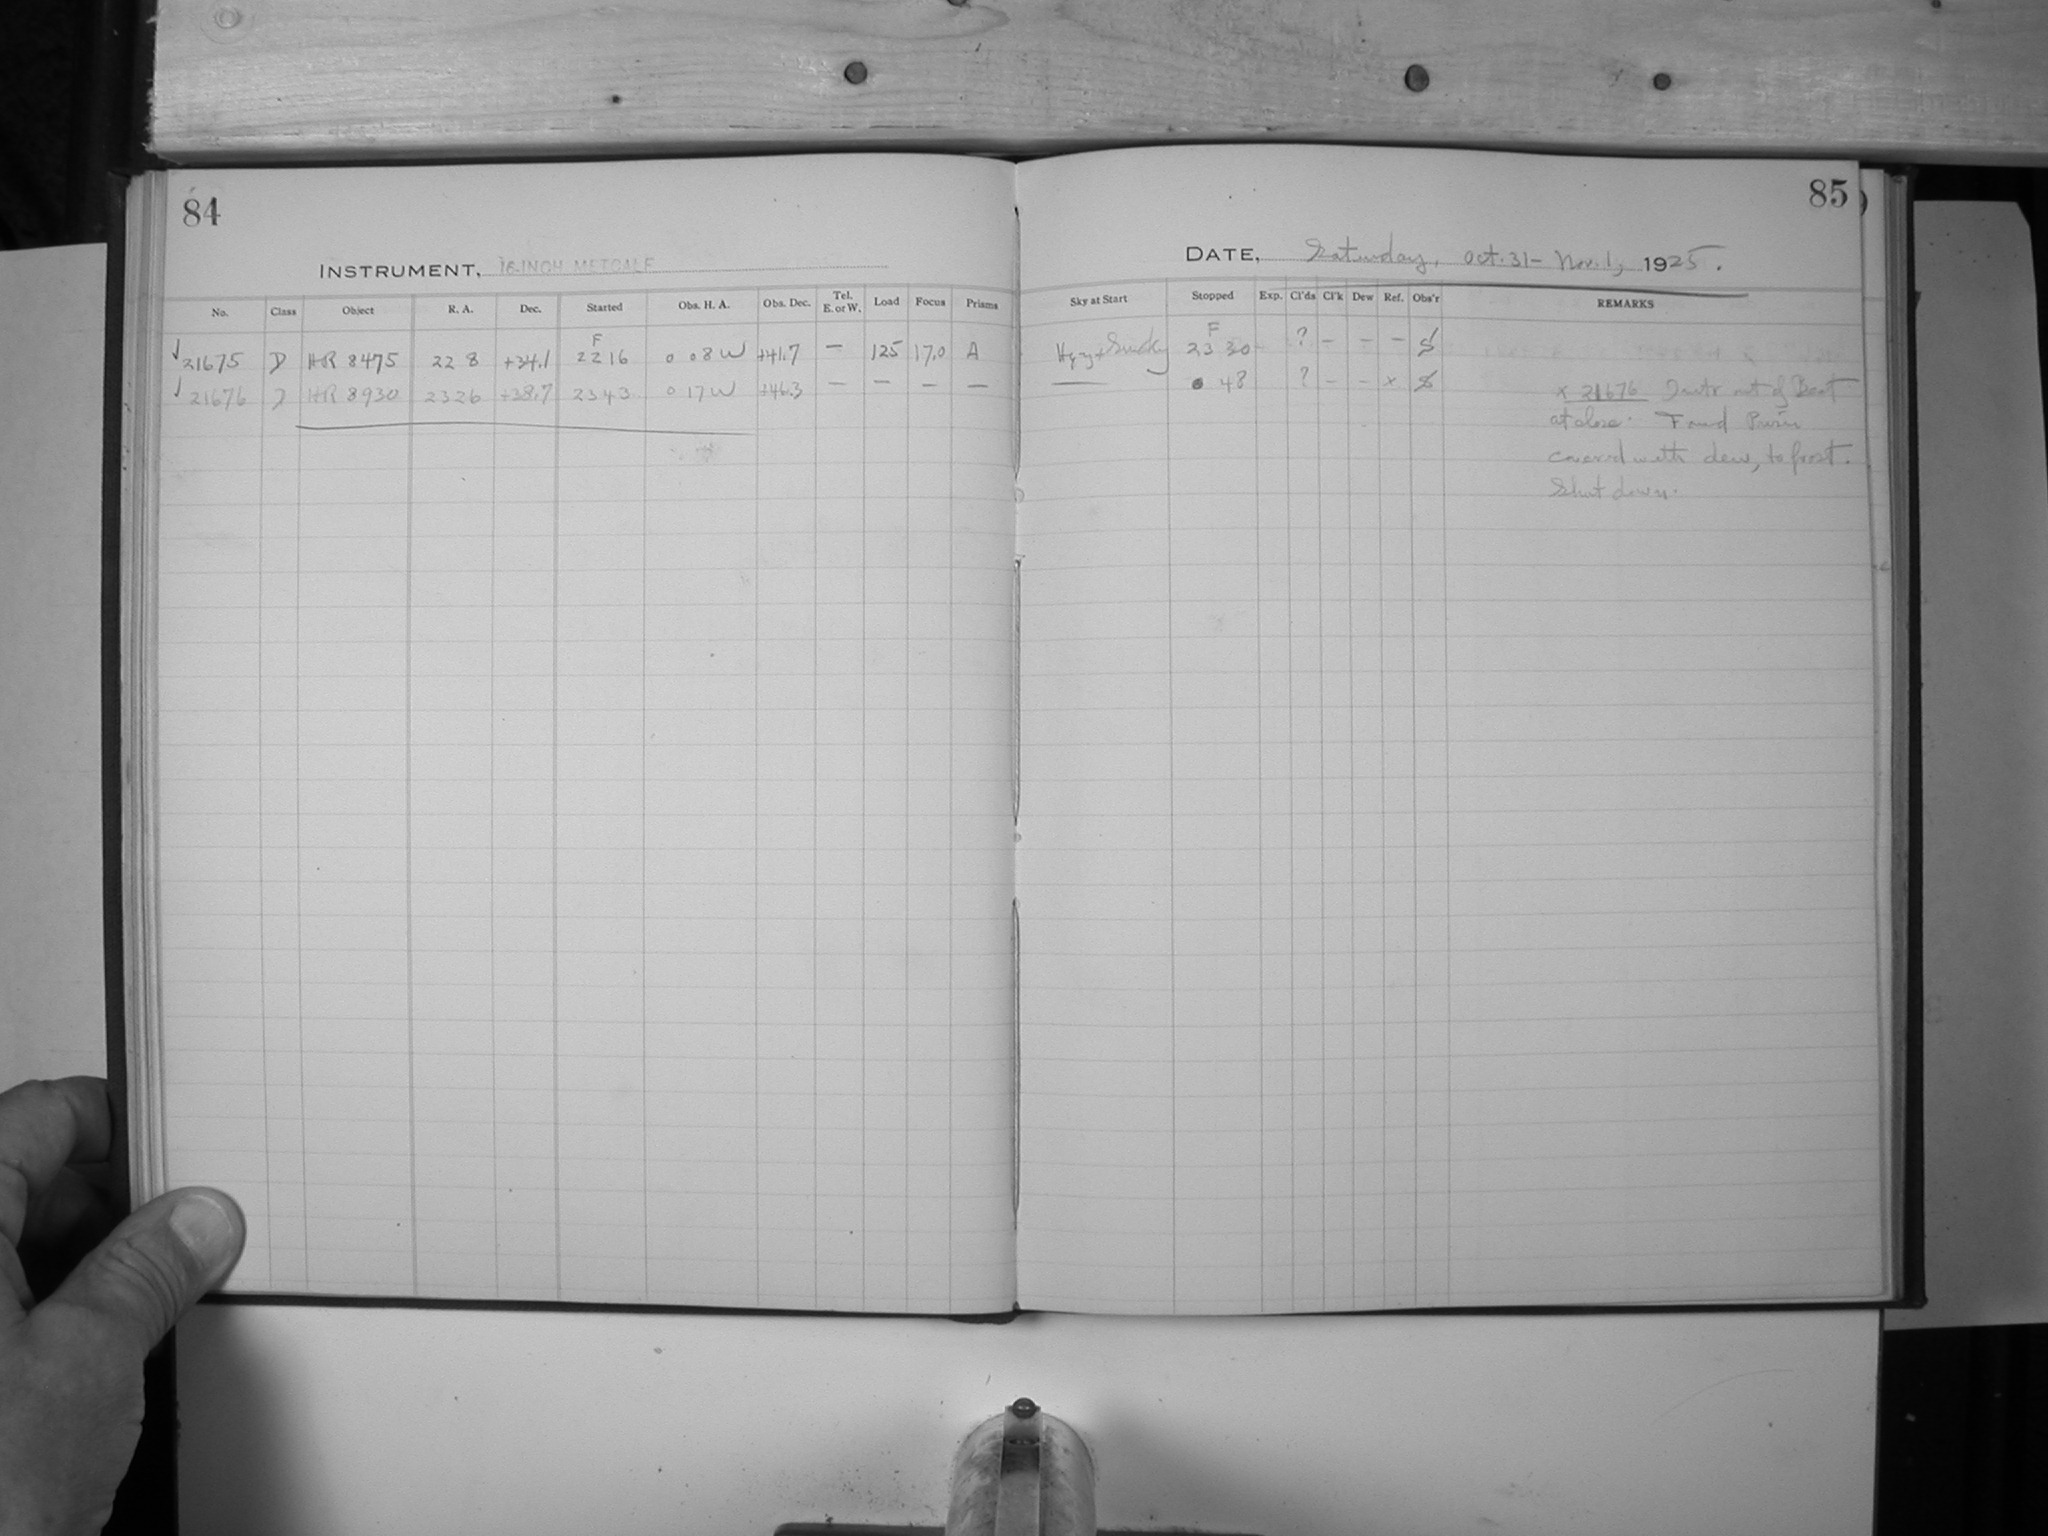 84
INSTRUMENT, 16-INCH METCALF
No. Class Object R. A. Dec. Started Obs. H. A. Obs. Dec. Tel. E. or W. Load Focus Prisms
F
√ 21675 D HR 8475 22 8 +34.1 22 16 0 08 W +41.7 — 125 17.0 A
√ 21676 D HR 8930 23 26 +38.7 23 43 0 17 W +46.3 — — — —
85
DATE, Saturday, Oct. 31 - Nov. 1, 1925.
Sky at Start Stopped Exp. Cl'ds Cl'k Dew Ref. Obs'r REMARKS
F
Hazy + 23 30 ? - - - S
—— 0 48 ? - - x S
x 21676 Instr out of Beat
at close. Found Prism
covered with dew, to frost.
Shut down.